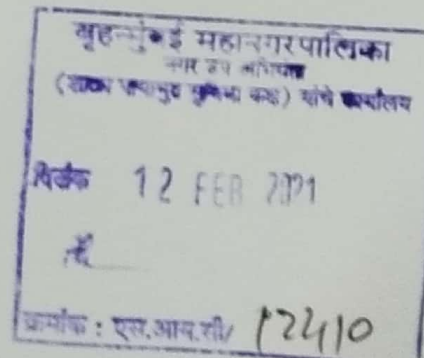 बृहन्मुंबई महानगरपालिका
नगर उप अभियंता
यांचे कार्यालय
दिनांक 12 FEB 2021
क्रमांक : एस.आय.सी/ 12410